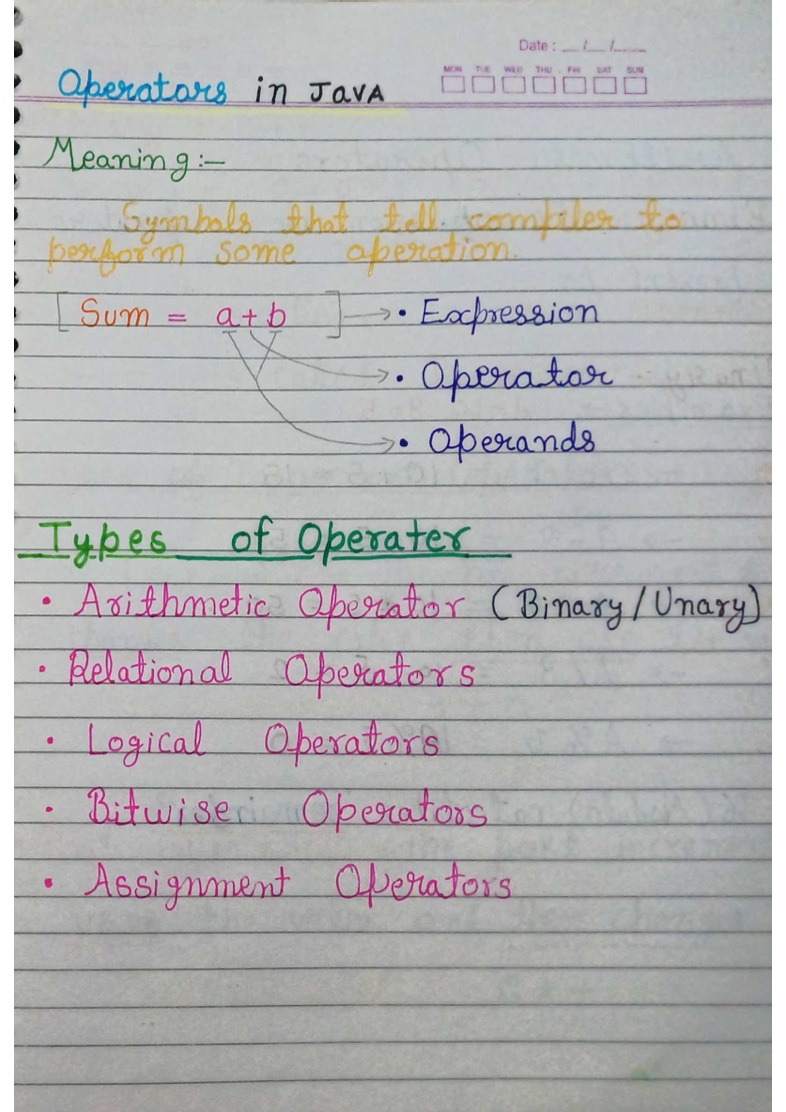 Date : __/__/____
MON TUE WED THU FRI SAT SUN
Operators in JavA
Meaning :-
Symbols that tell compiler to
perform some operation.
[ Sum = a+b ] → • Expression
• Operator
• Operands
Types of Operater
• Arithmetic Operator (Binary/Unary)
• Relational Operators
• Logical Operators
• Bitwise Operators
• Assignment Operators